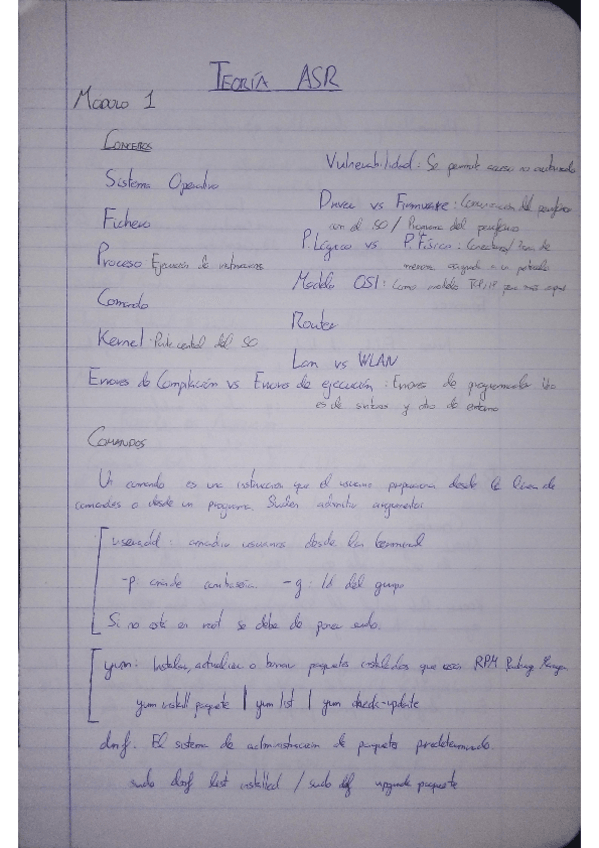 TEORÍA ASR
MODULO 1
CONCEPTOS
Sistema Operativo
Fichero
Proceso Ejecución de instrucciones
Comando
Kernel: Parte central del SO
Vulnerabilidad: Se permite acceso no autorizado
Driver vs Firmware: Comunicación del periférico
con el SO / Programa del periférico
P. Lógico vs P. Físico: Conectores / Zona de
memoria asignada a un
Modelo OSI: Como modelo TCP/IP pero más capas
Router
Lan vs WLAN
Errores de Compilación vs Errores de ejecución: Errores de programación Uno
es de sintaxis y otro de entorno
COMANDOS
Un comando es una instrucción que el usuario proporciona desde la línea de
comandos o desde un programa. Suelen admitir argumentos
useradd: añadir usuarios desde la terminal
-p añade contraseña. -g: Id del grupo
Si no esta en root se debe de poner sudo.
yum: Instalar, actualizar o borrar paquetes instalados que usan RPM Package Manager
yum install paquete | yum list | yum check-update
dnf. El sistema de administración de paquetes predeterminado.
sudo dnf list installed / sudo dnf upgrade paquete